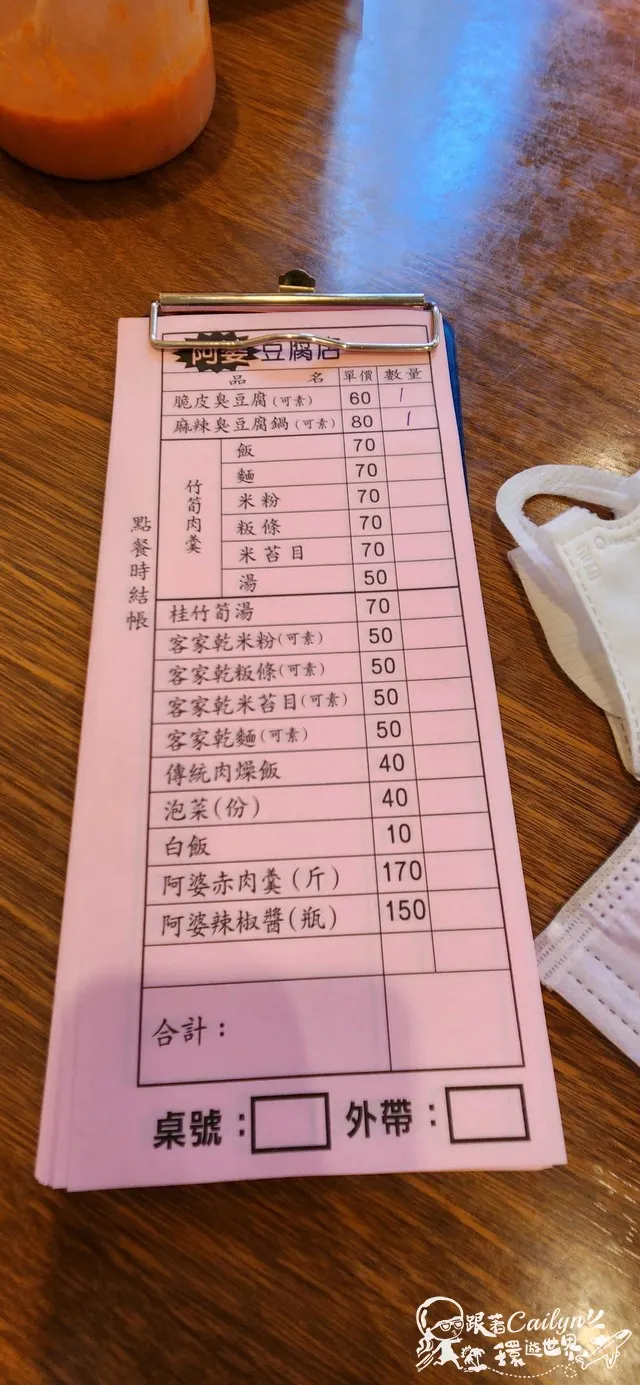 阿婆豆腐店
品名 單價 數量
脆皮臭豆腐(可素) 60 1
麻辣臭豆腐鍋(可素) 80 1
竹筍肉羹
飯 70
麵 70
米粉 70
粄條 70
米苔目 70
湯 50
桂竹筍湯 70
客家乾米粉(可素) 50
客家乾粄條(可素) 50
客家乾米苔目(可素) 50
客家乾麵(可素) 50
傳統肉燥飯 40
泡菜(份) 40
白飯 10
阿婆赤肉羹(斤) 170
阿婆辣椒醬(瓶) 150
合計：
桌號： 外帶：
點餐時結帳
跟著Cailyn
環遊世界